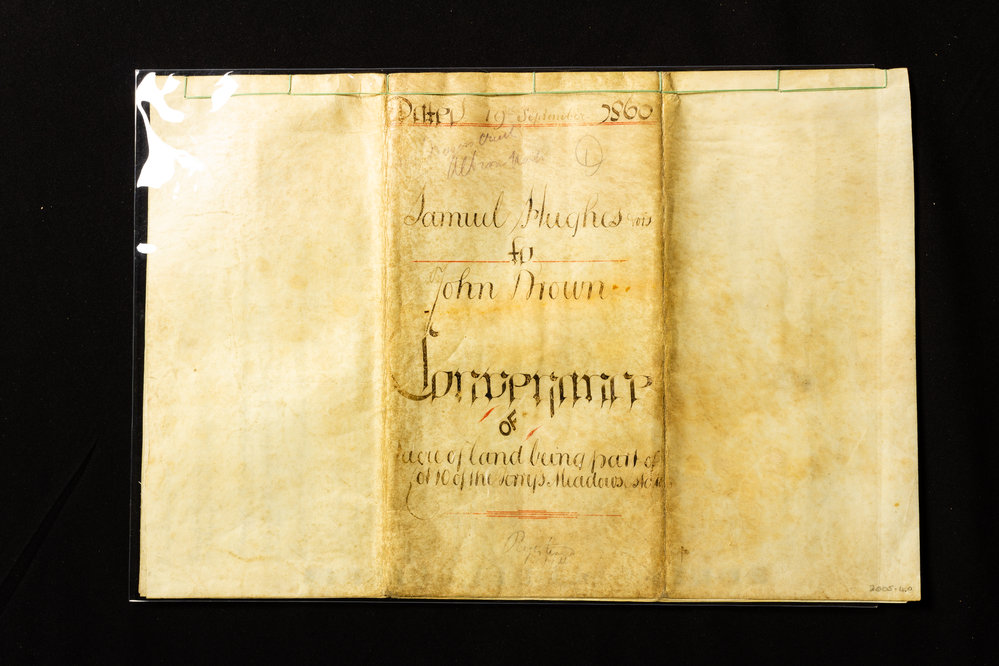 Dated 19 September 1860
①
Samuel Hughes
to
John Brown
Conveyance
OF
acre of land being part of
of the Meadows
2005.40